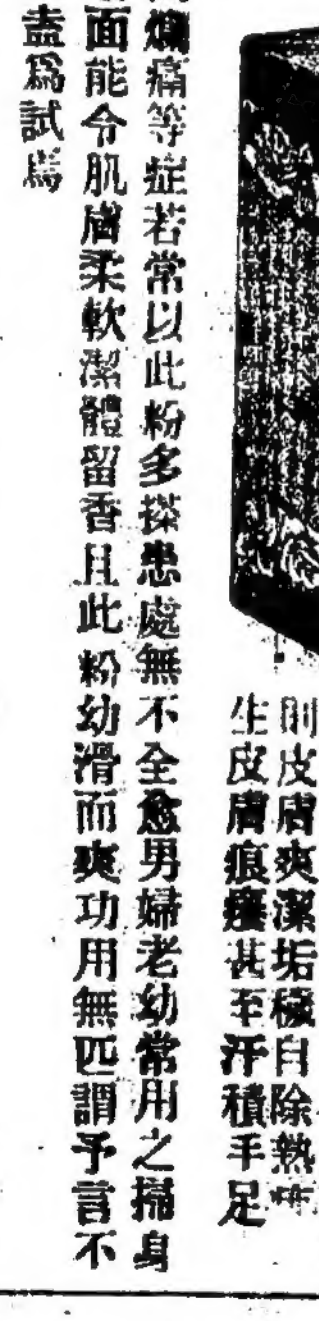 則皮膚爽潔垢穢自除熱
生皮膚痕癢甚至汗積手足
爛痛等症若常以此粉多搽患處無不全愈男婦老幼常用之搨身
面能令肌膚柔軟潔體留香且此粉幼滑而爽功用無匹謂予言不
盍為試焉